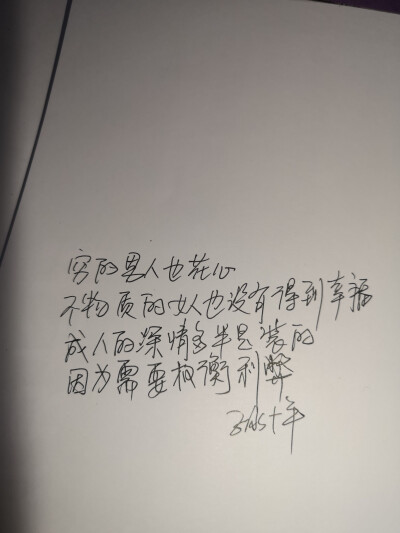 穷的男人也花心
不物质的女人也没有得到幸福
成人的深情多半是装的
因为需要权衡利弊
十年